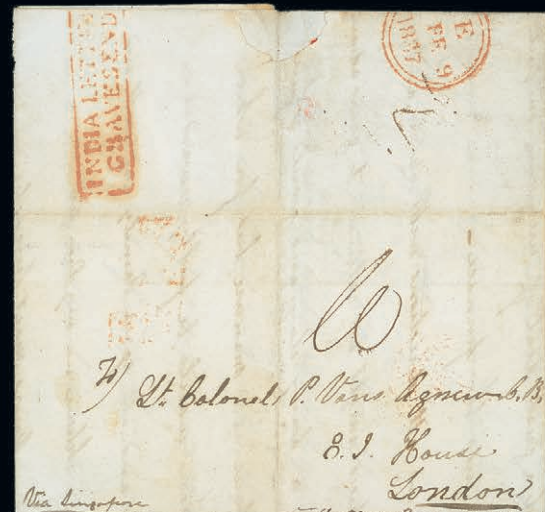 INDIA LETTER
GRAVESEND
E
FE 9
1837
Lt. Colonel P. Vans Agnew C.B.
E.I. House
London
Via Singapore